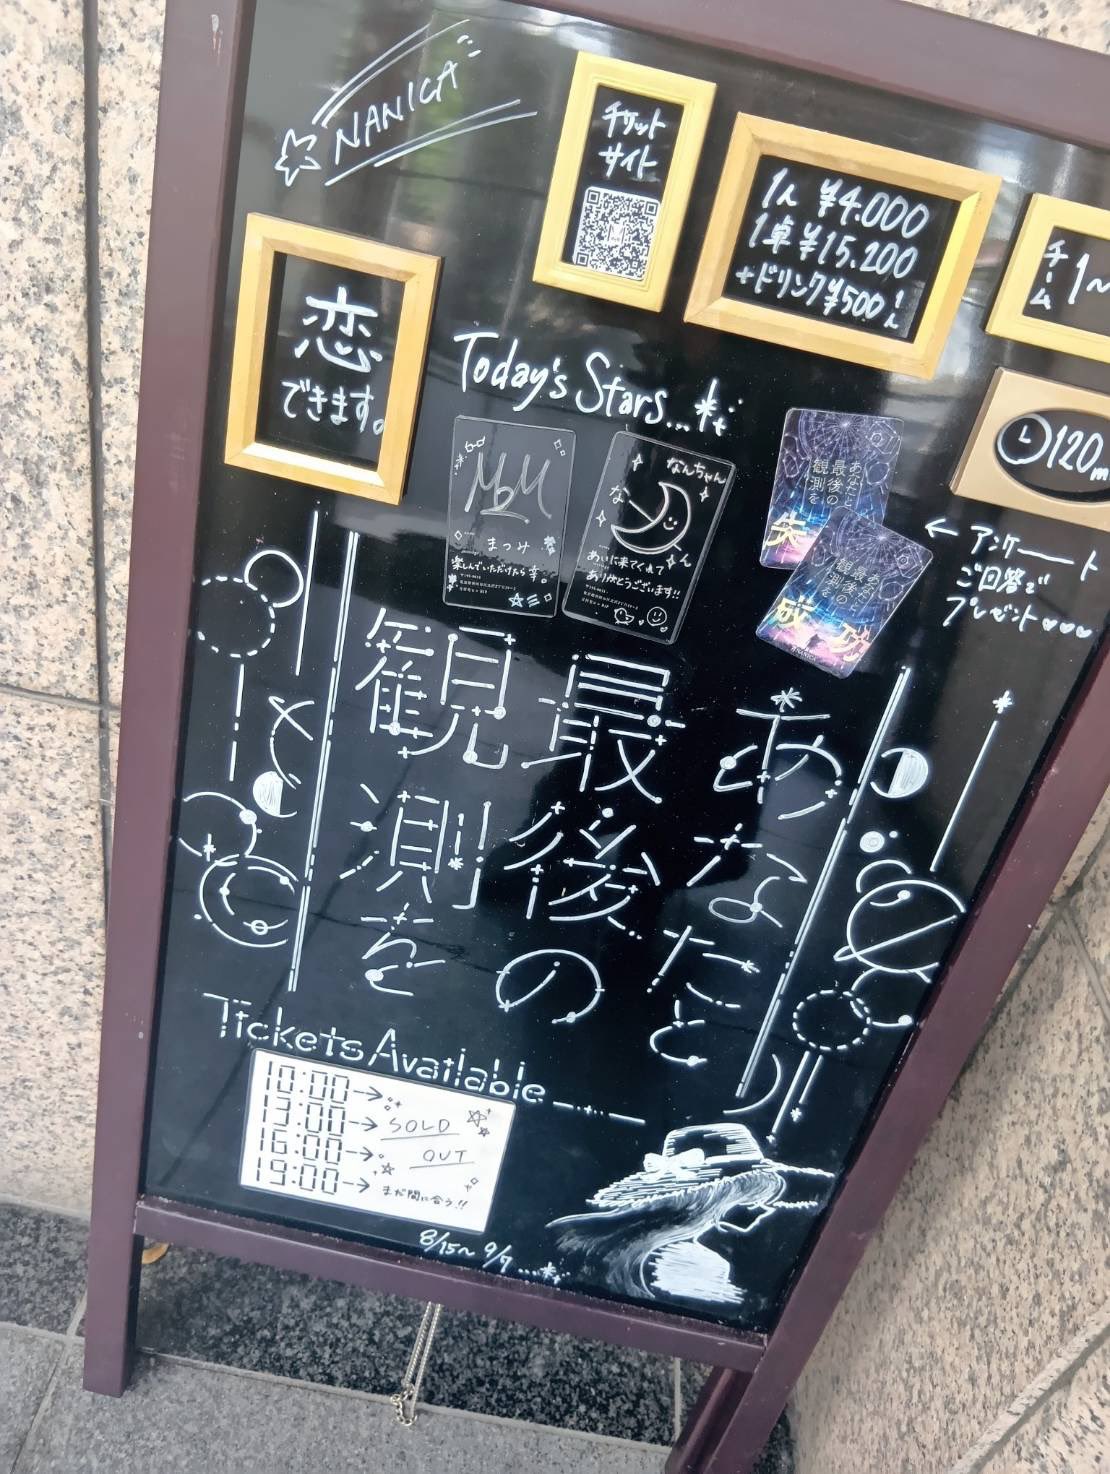 NANICA
チケット
サイト
1人 ¥4.000
1卓 ¥15.200
+ドリンク¥500/1人
チーム 1〜
120m
恋
できます。
Today's Stars...
まつみ
楽しんでいただけたら幸。
なんちゃん
な
ん
あいに来てくれて
ありがとうございます!!
あなたと
最後の
観測を
失
あなたと
最後の
観測を
成功
← アンケート
ご回答で
プレゼント♡♡♡
あなたと
最後の
観測を
Tickets Available
10:00→
13:00→ SOLD
16:00→ OUT
19:00→ まだ間に合う!!
8/15〜9/7